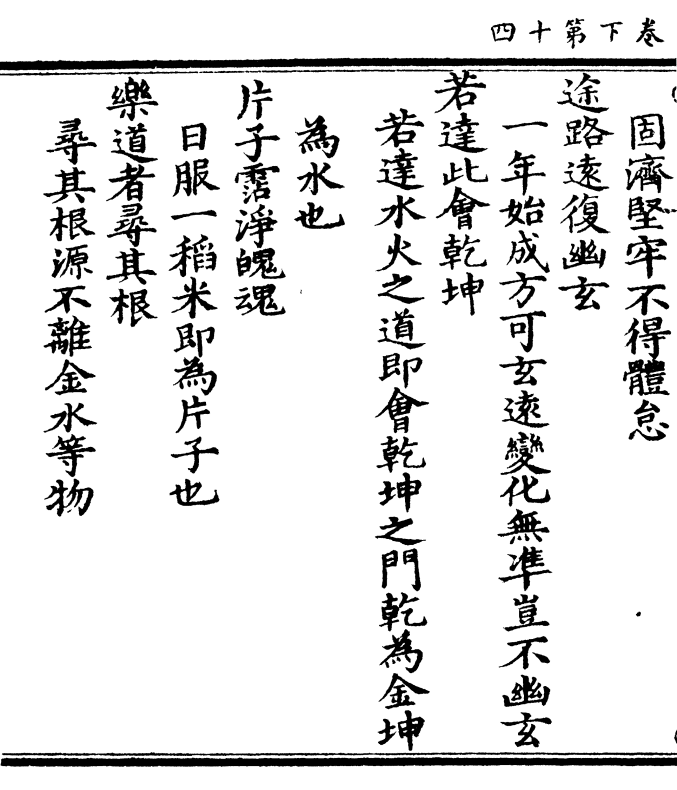 卷下第十四
固濟堅牢不得體怠
途路遠復幽玄
一年始成方可玄遠變化無準豈不幽玄
若達此會乾坤
若達水火之道即會乾坤之門乾為金坤
為水也
片子霑淨魄魂
日服一稻米即為片子也
樂道者尋其根
尋其根源不離金水等物